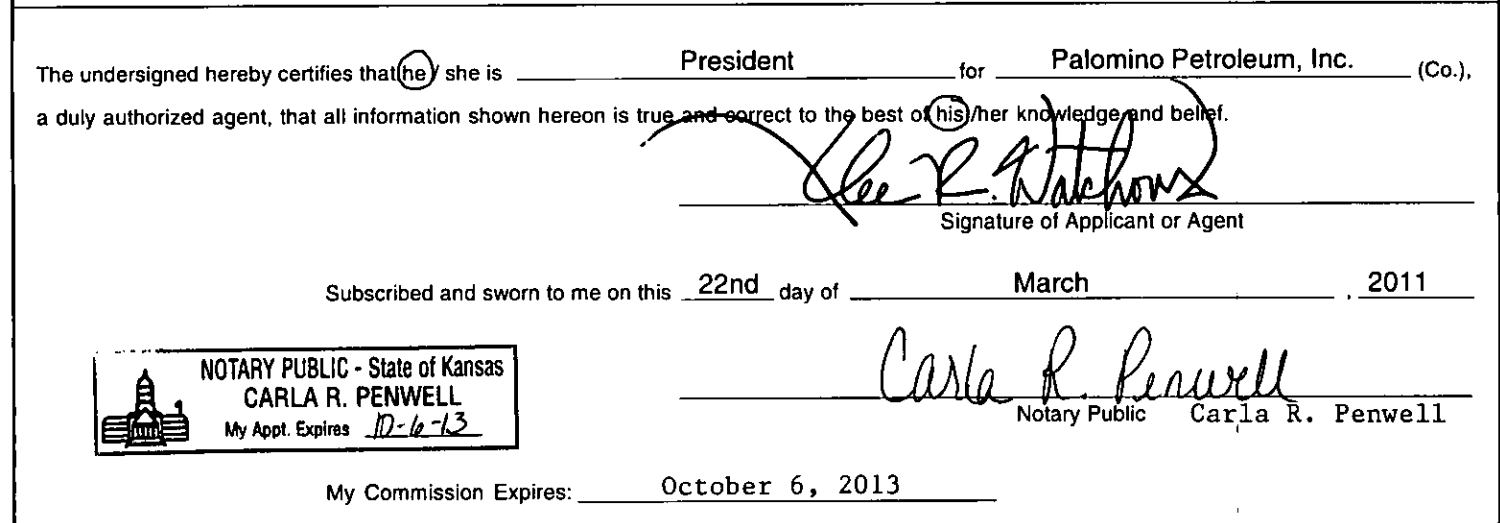 The undersigned hereby certifies that he / she is President for Palomino Petroleum, Inc. (Co.),
a duly authorized agent, that all information shown hereon is true and correct to the best of his/her knowledge and belief.
Klee R. Watchous
Signature of Applicant or Agent
Subscribed and sworn to me on this 22nd day of March, 2011
NOTARY PUBLIC - State of Kansas
CARLA R. PENWELL
My Appt. Expires 10-6-13
Carla R. Penwell
Notary Public Carla R. Penwell
My Commission Expires: October 6, 2013